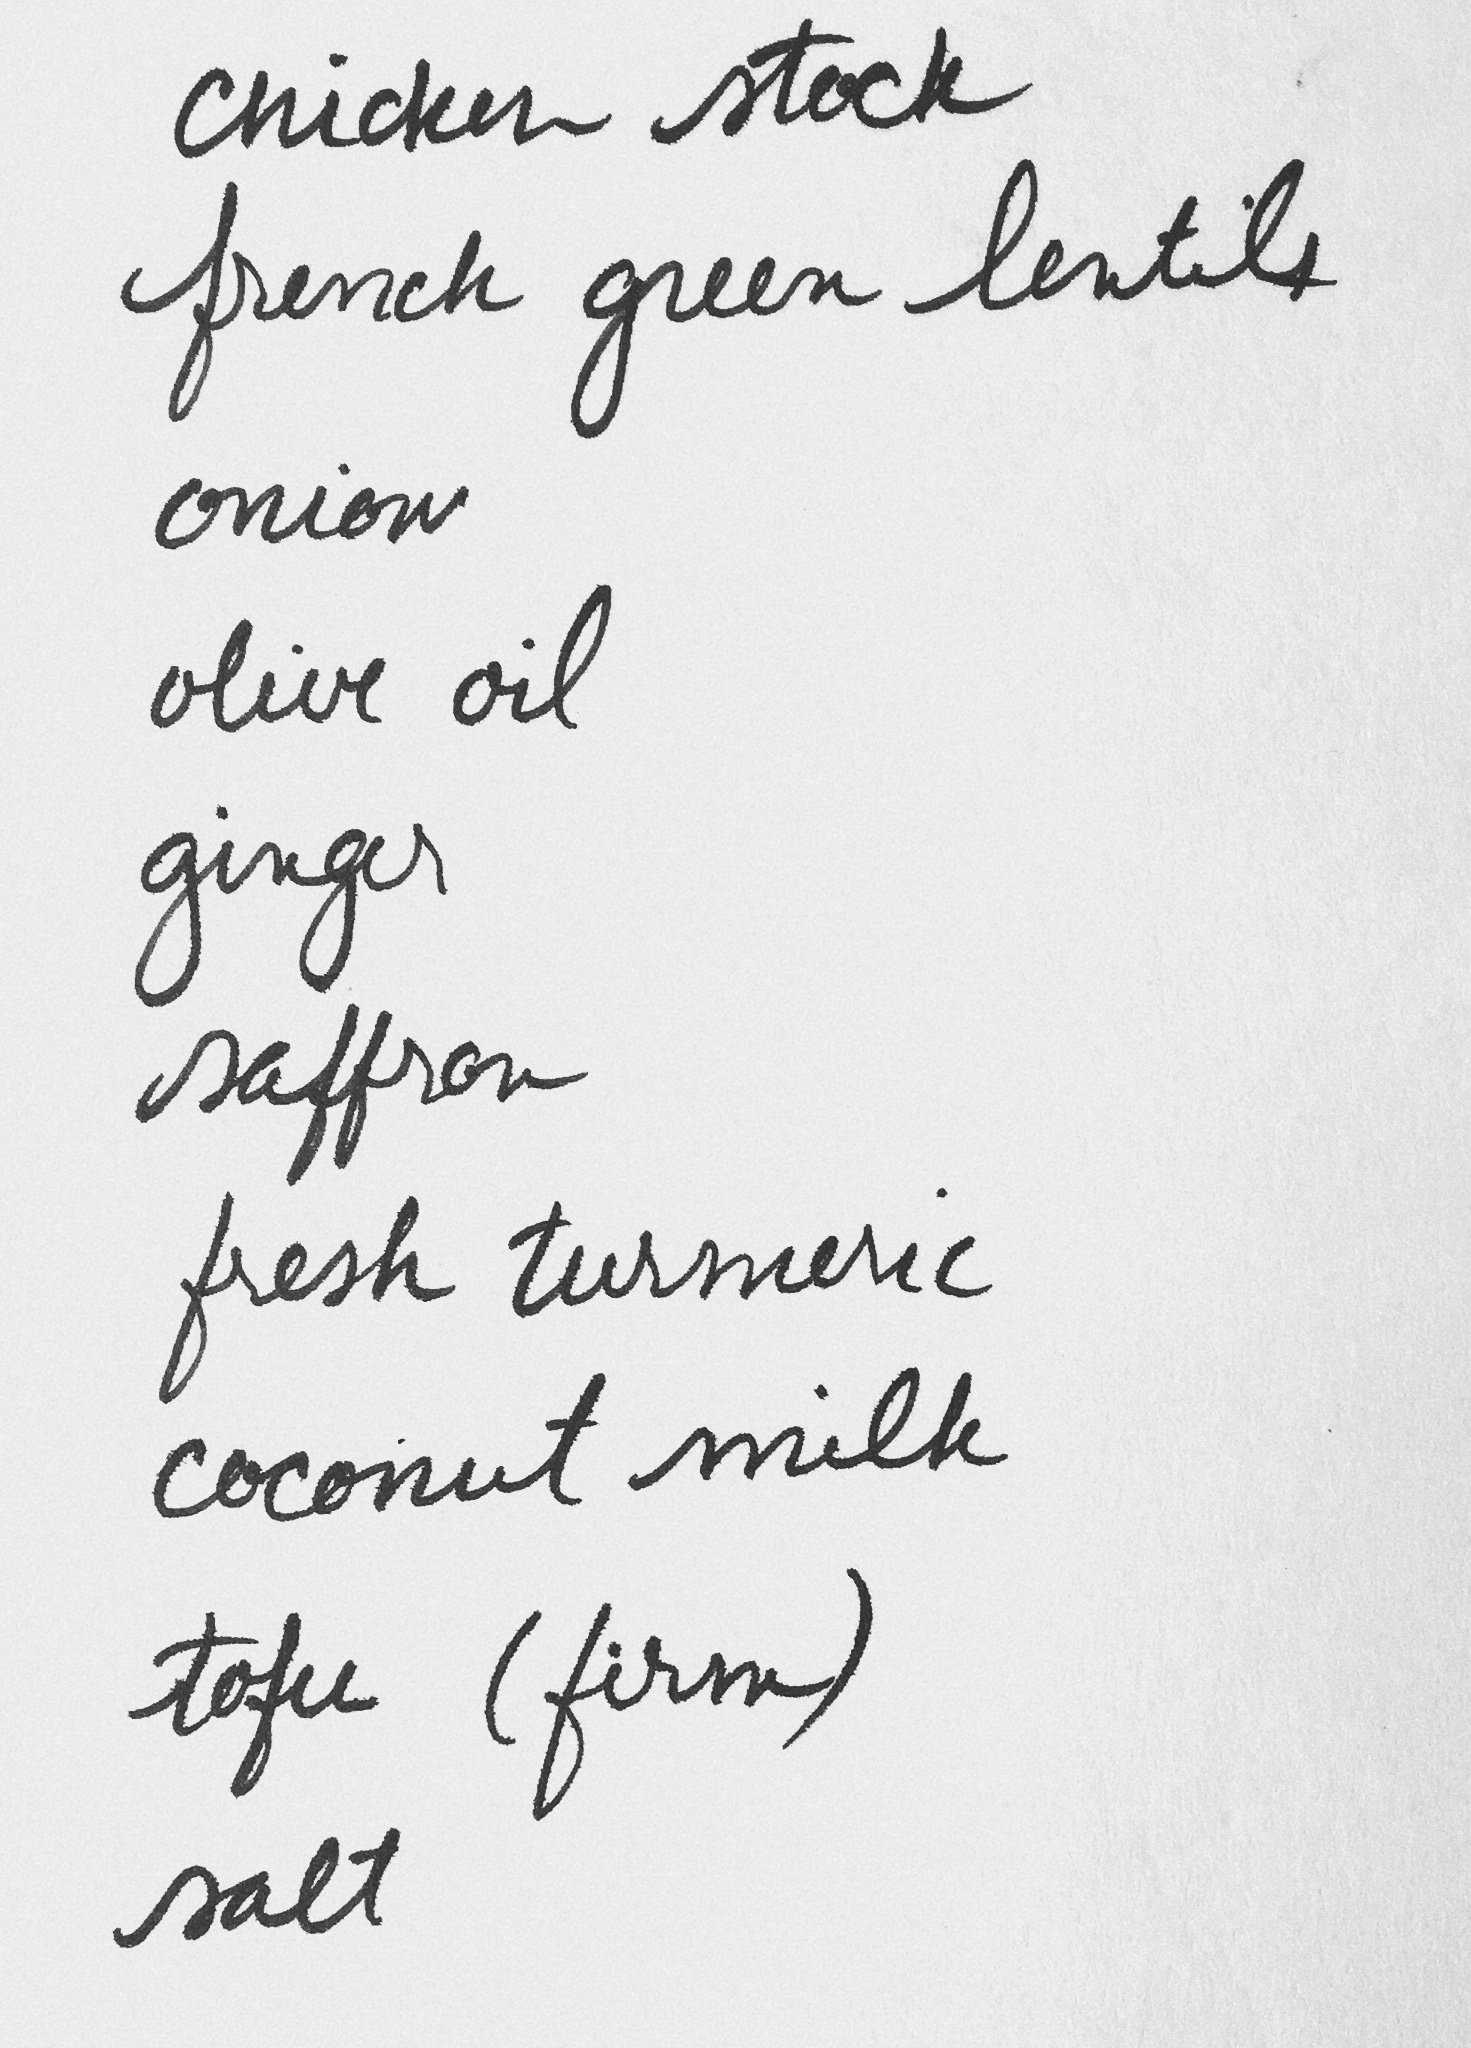 chicken stock
french green lentils
onion
olive oil
ginger
saffron
fresh turmeric
coconut milk
tofu (firm)
salt